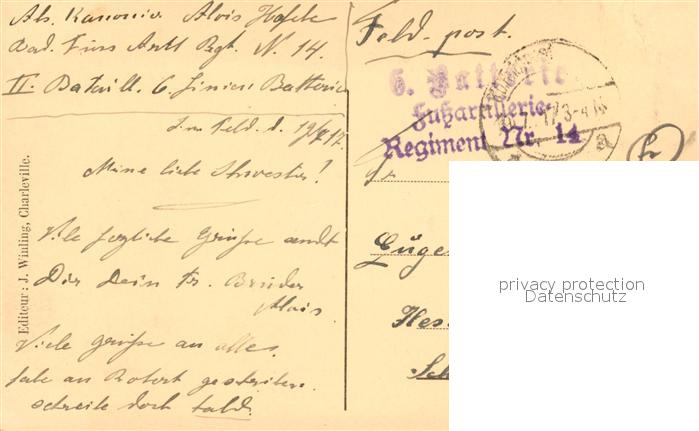 Abs. Kanonier Alois
Bad. Fuss Artl Rgt. N. 14
II. Bataill. 6. Linien Batterie
Im Feld. d. 19/7 17
Meine liebe Schwester!
Viele herzliche Grüsse sendt
Dir Dein tr. Bruder
Alois
Viele Grüsse an alles.
habe an Robert geschrieben.
schreibe doch bald.
Editeur: J. Winling, Charleville.
Feld-post.
6. Batterie
Fußartillerie-
Regiment Nr. 14
privacy protection
Datenschutz